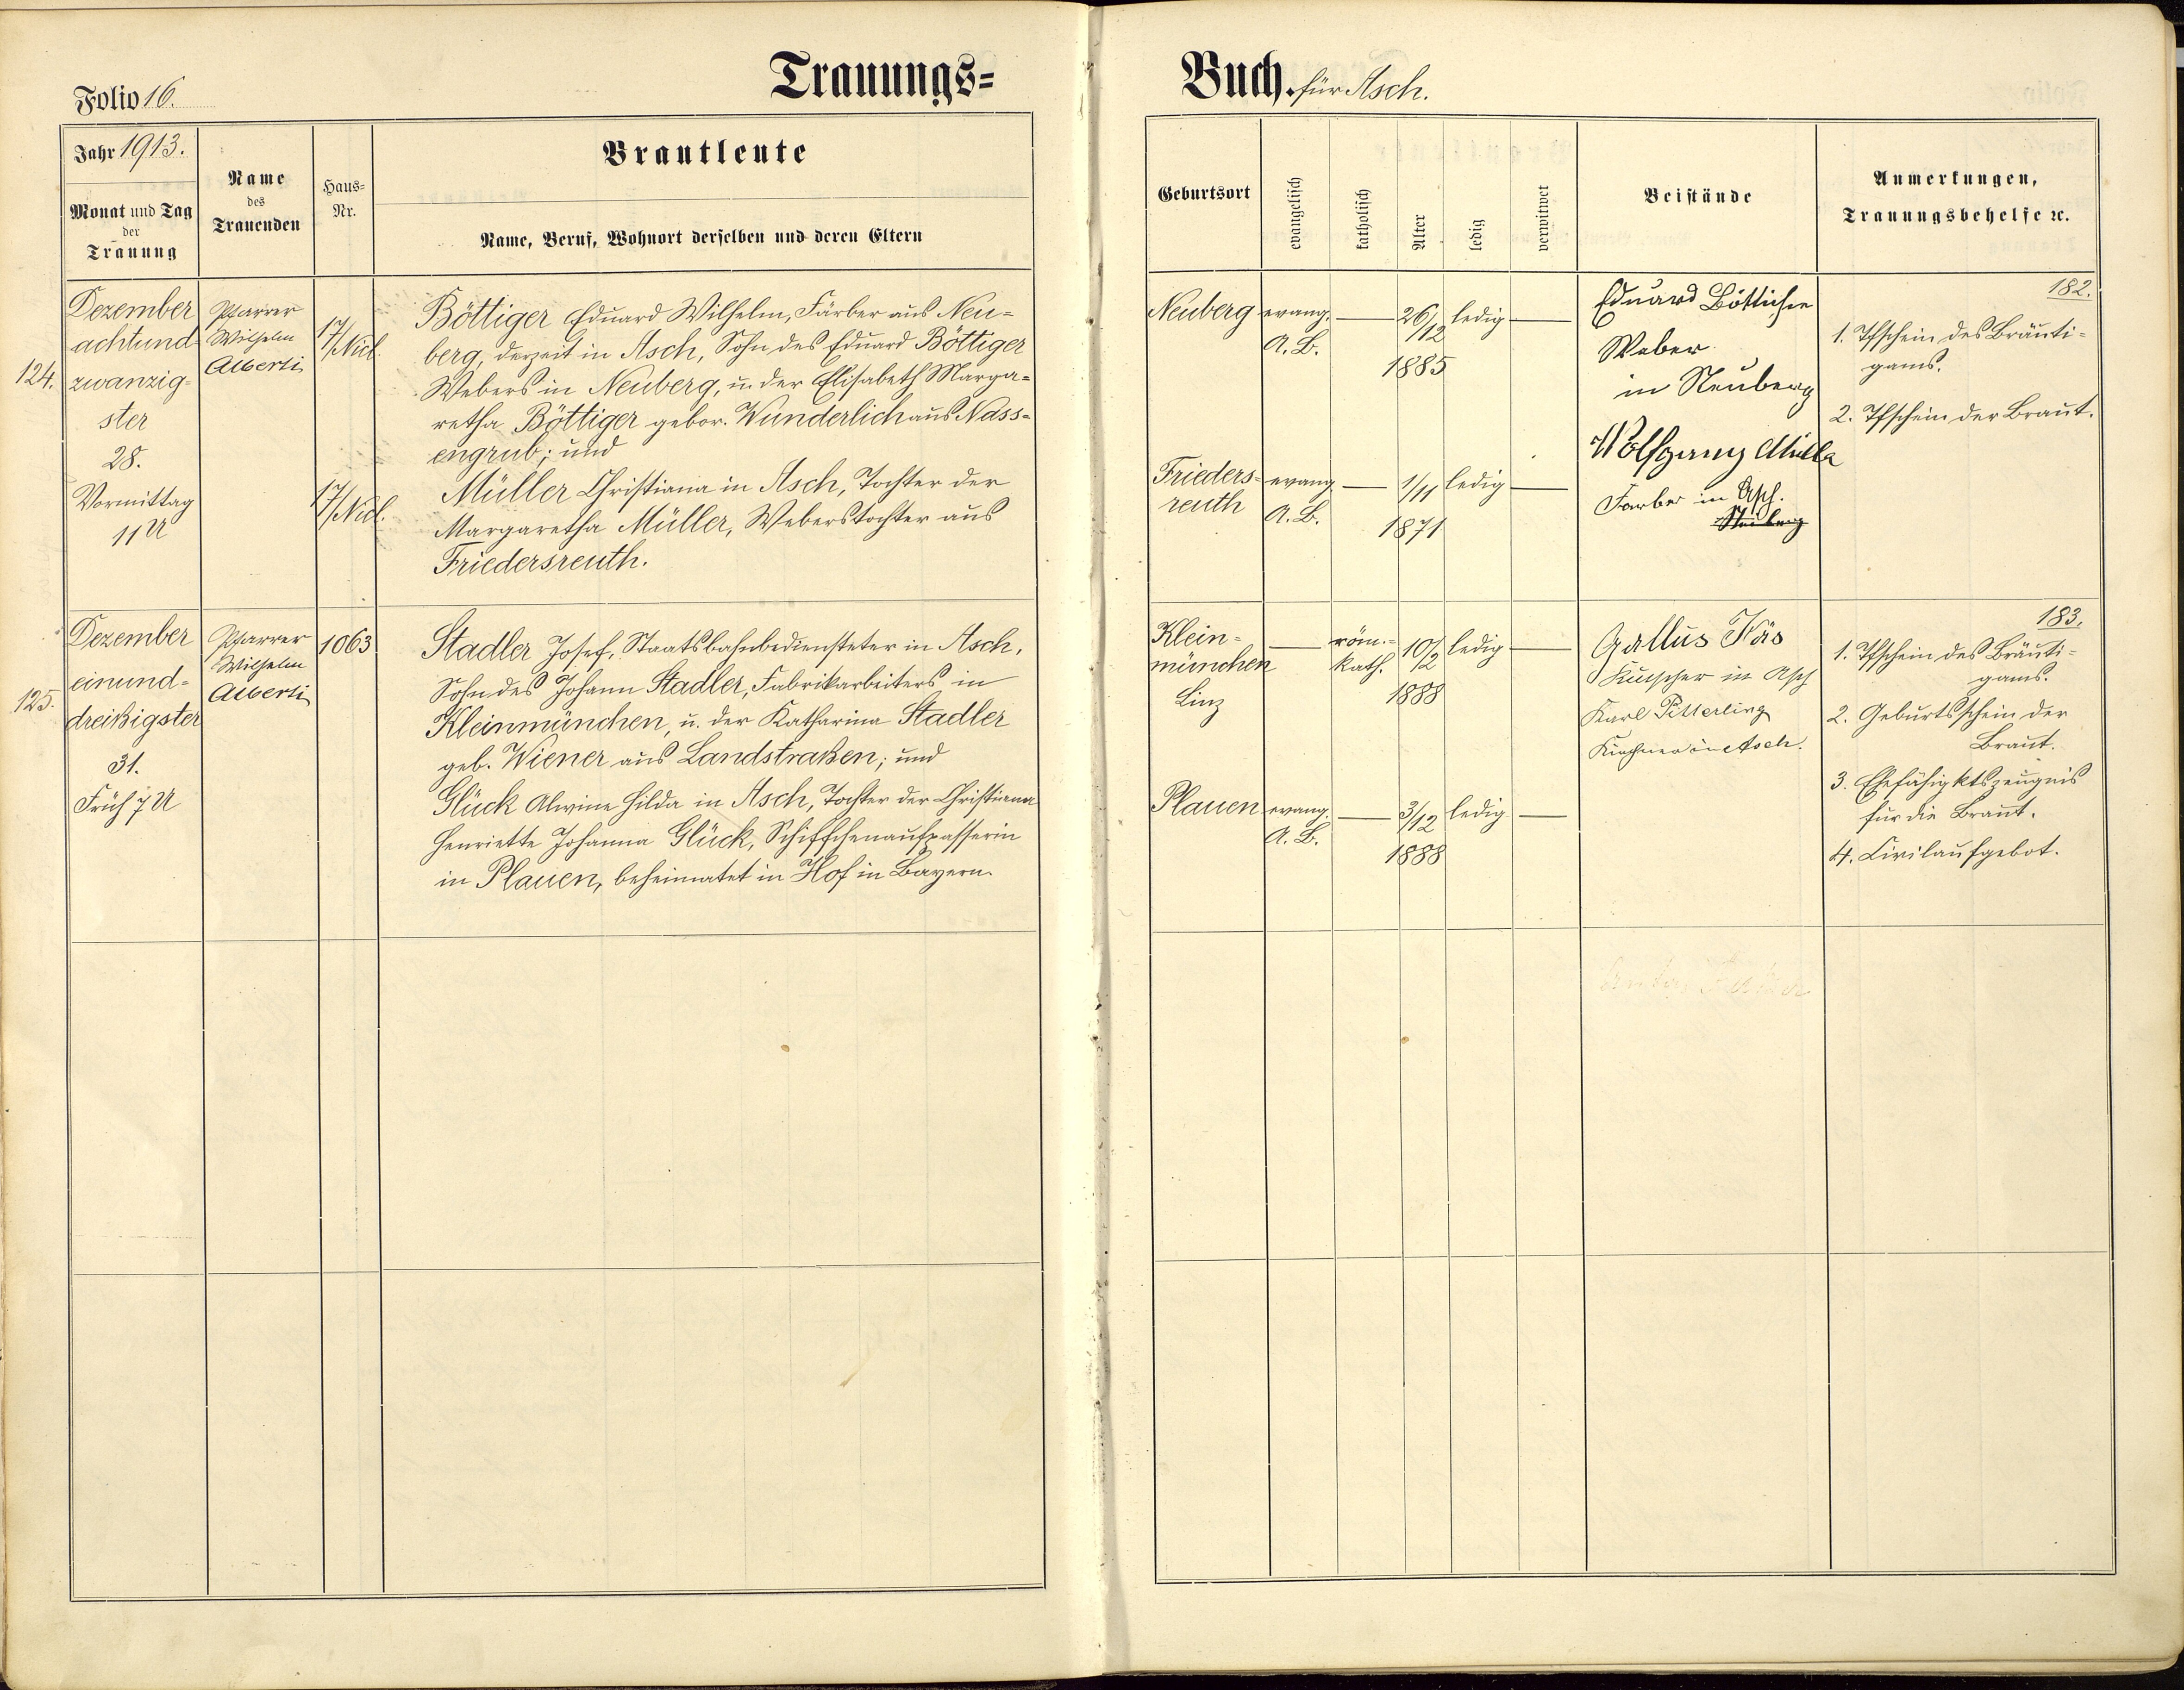 Folio 16.
Trauungs=
Jahr 1913.
Monat und Tag
der
Trauung
Name
des
Trauenden
Haus=
Nr.
Brautleute
Name, Beruf, Wohnort derselben und deren Eltern
124.
Dezember
achtund
zwanzig=
ster
28.
Vormittag
11 U
Pfarrer
Wilhelm
Alberti
17/Nicl.
17/Nicl.
Böttiger Eduard Wilhelm, Färber aus Neu=
berg, derzeit in Asch, Sohn des Eduard Böttiger
Webers in Neuberg, u. der Elisabeth Marga=
retha Böttiger gebor. Wunderlich aus Nass=
engrub; und
Müller Christiana in Asch, Tochter der
Margaretha Müller, Weberstochter aus
Friedersreuth.
125.
Dezember
einund=
dreißigster
31.
Früh 7 U
Pfarrer
Wilhelm
Alberti
1063
Stadler Josef, Staatsbahnbediensteter in Asch,
Sohn des Johann Stadler, Fabrikarbeiters in
Kleinmünchen, u. der Katharina Stadler
geb. Wiener aus Landstraßen; und
Glück Alwine Hilda in Asch, Tochter der Christiana
Henriette Johanna Glück, Schiffchenaufpasserin
in Plauen, beheimatet in Hof in Bayern.
Buch. für Asch.
Geburtsort
evangelisch
katholisch
Alter
ledig
verwitwet
Beistände
Anmerkungen,
Trauungsbehelfe ꝛc.
Neuberg
evang.
A. B.
26/12
1885
ledig
Frieders=
reuth
evang.
A. B.
1/11
1871
ledig
Eduard Böttiger
Weber
in Neuberg
Wolfgang Müller
Farber in Asch.
Neuberg
182.
1. Tfschein des Bräuti=
gams.
2. Tfschein der Braut.
Klein=
münchen
Linz
röm.=
kath.
10/2
1888
ledig
Plauen
evang.
A. B.
3/12
1888
ledig
Gallus Käs
Kutscher in Asch
Karl Pitterling
Kirchner in Asch.
183.
1. Tfschein des Bräuti=
gams.
2. Geburtsschein der
Braut.
3. Ehefähigktszeugnis
für die Braut.
4. Civilaufgebot.